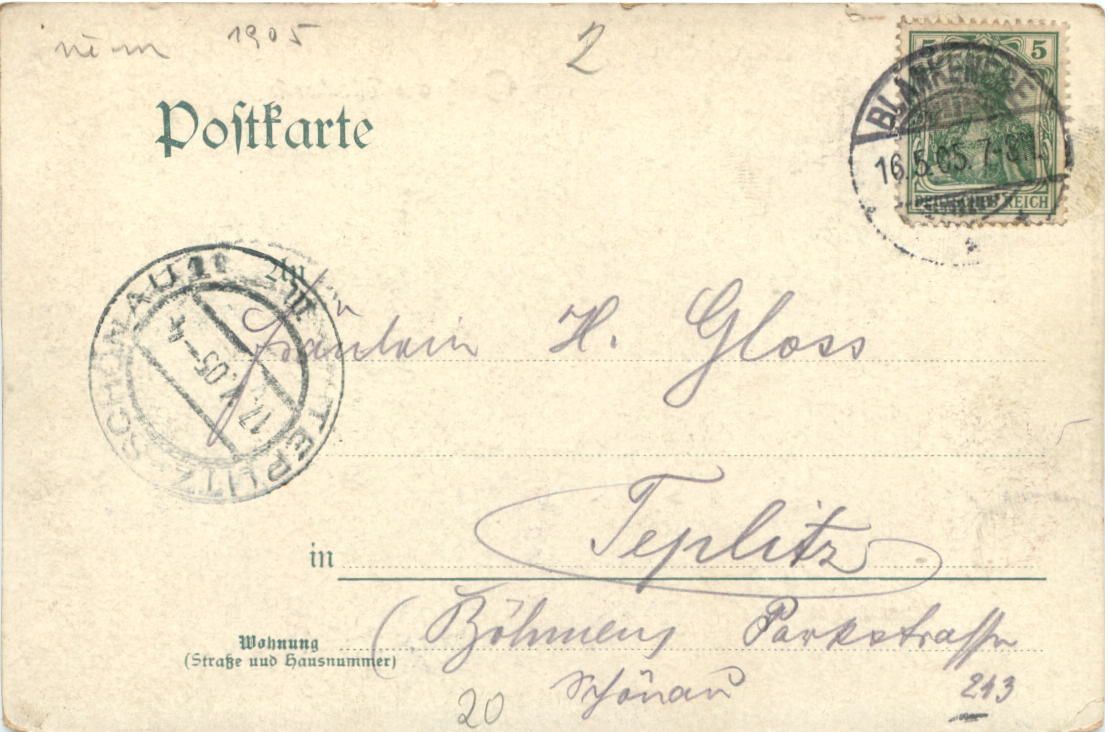 něm 1905 2
Postkarte
5 5
BLANKENESE
16.5.05. 7-8N.
DEUTSCHES REICH
An
Fräulein H. Gloss
TEPLITZ-SCHÖNAU 1
17.V.05-4
in Teplitz
(Böhmen) Parkstrasse
Wohnung
(Straße und Hausnummer)
Schönau 213
20